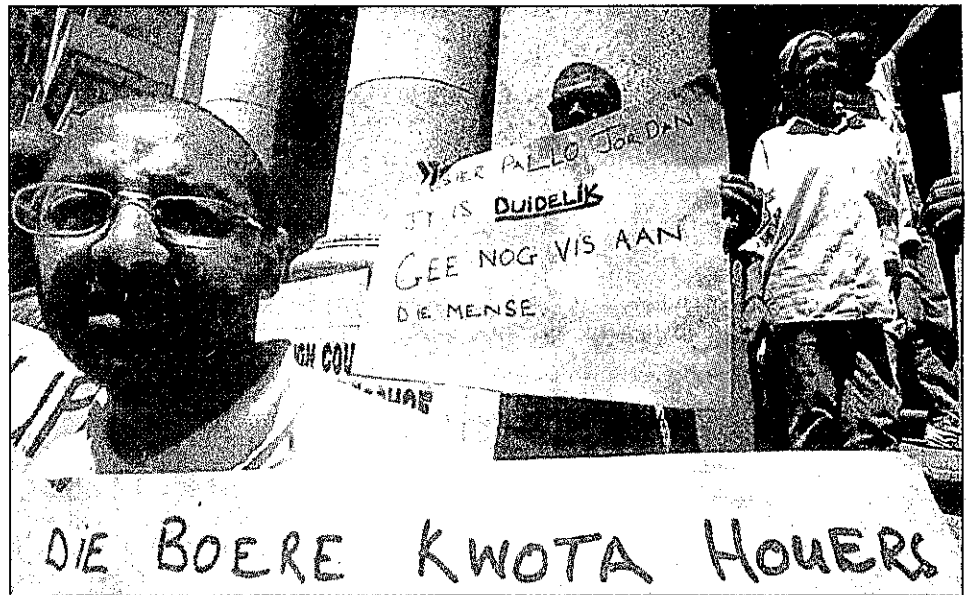 SIER PALLO JORDAN
IT IS DUIDELIK
GEE NOG VIS AAN
DIE MENSE.
COU
DIE BOERE KWOTA HOUERS